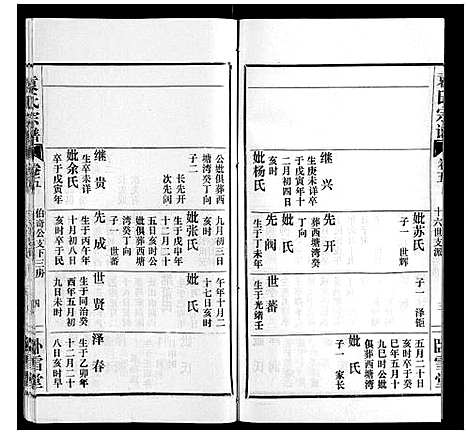 袁氏宗譜
卷五
十六世支派
三
臥雪堂
妣苏氏
子一 世辉
子一 泽钜
五月二十日
亥时卒于民
国己年五月十
九巳时公妣
俱葬西塘湾
子一 家长
先开
葬西塘湾癸
丁向
妣氏
继兴
生庚未详卒
于戊寅年十
二月初四日
妣杨氏
先阀
生于丁未年
世蕃
生于光绪壬
公妣俱葬西
塘湾癸丁向
长先开
次先阀
九月初三日
亥时
妣张氏
生于戊申年
十二月二十
五日亥时公
妣俱葬西塘
湾癸丁向
子一 世蕃
午年十月二
十七日亥时
妣 氏
继贵
生卒未详
妣余氏
卒于戊寅年
先成
生于丙午年
亥时卒于民
世贤
生于同治癸
酉年五月初
九日未时
泽春
生于乙卯年
十二月二十
八日亥时早
袁氏宗譜
卷五
伯奇公支下三房
四
臥雪堂